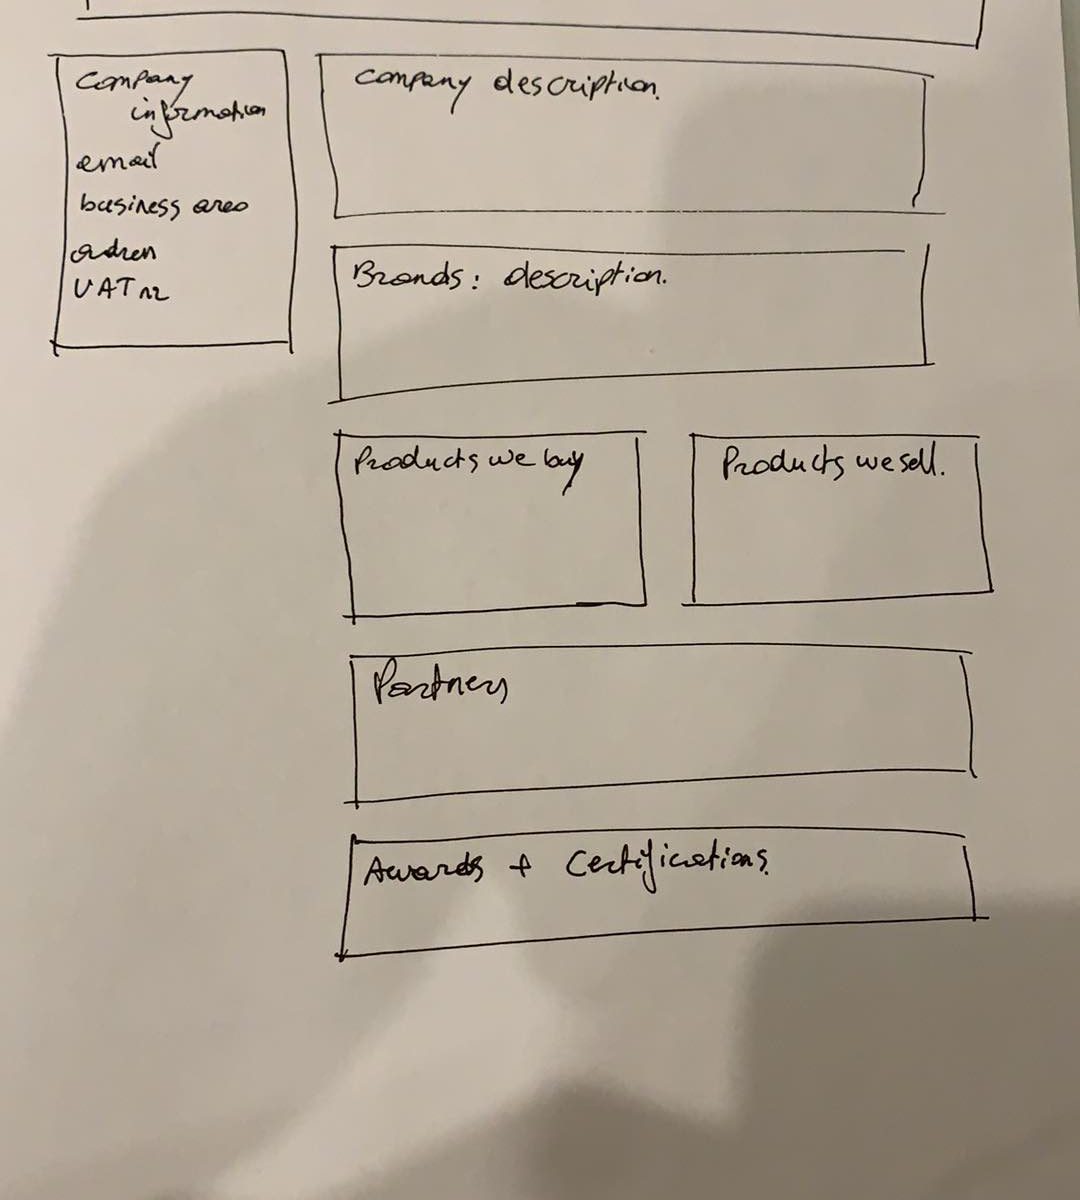 Company
information
email
business area
adress
VAT nr
Company description.
Brands: description.
Products we buy
Products we sell.
Partners
Awards + Certifications.